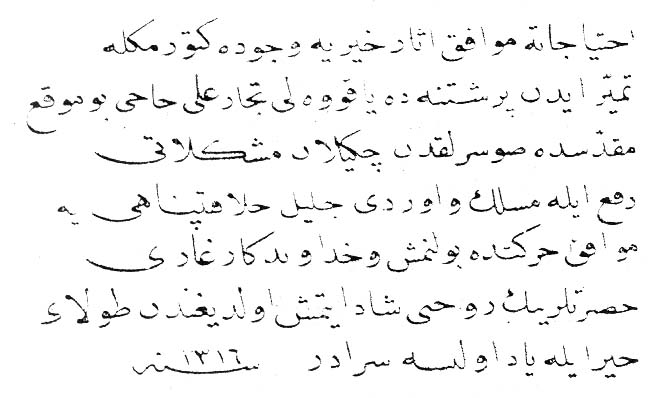 احتیاجاته موافق اثار خیریه وجوده كتورمكله
تمیّز ایدن پرشتنه ده یاقووه لی تجار علی حاجی بو موقع
مقدّسده صوسزلقدن چكیلان مشكلاتی
رفع ایله مسلك و اوردی جلیل خلافتپناهی یه
موافق حركتده بولنمش و خداوندكار غازی
حضرتلرینك روحنی شاد ایتمش اولدیغندن طولای
خیر ایله یاد اولنسه سزادر سنه ١٣١٦